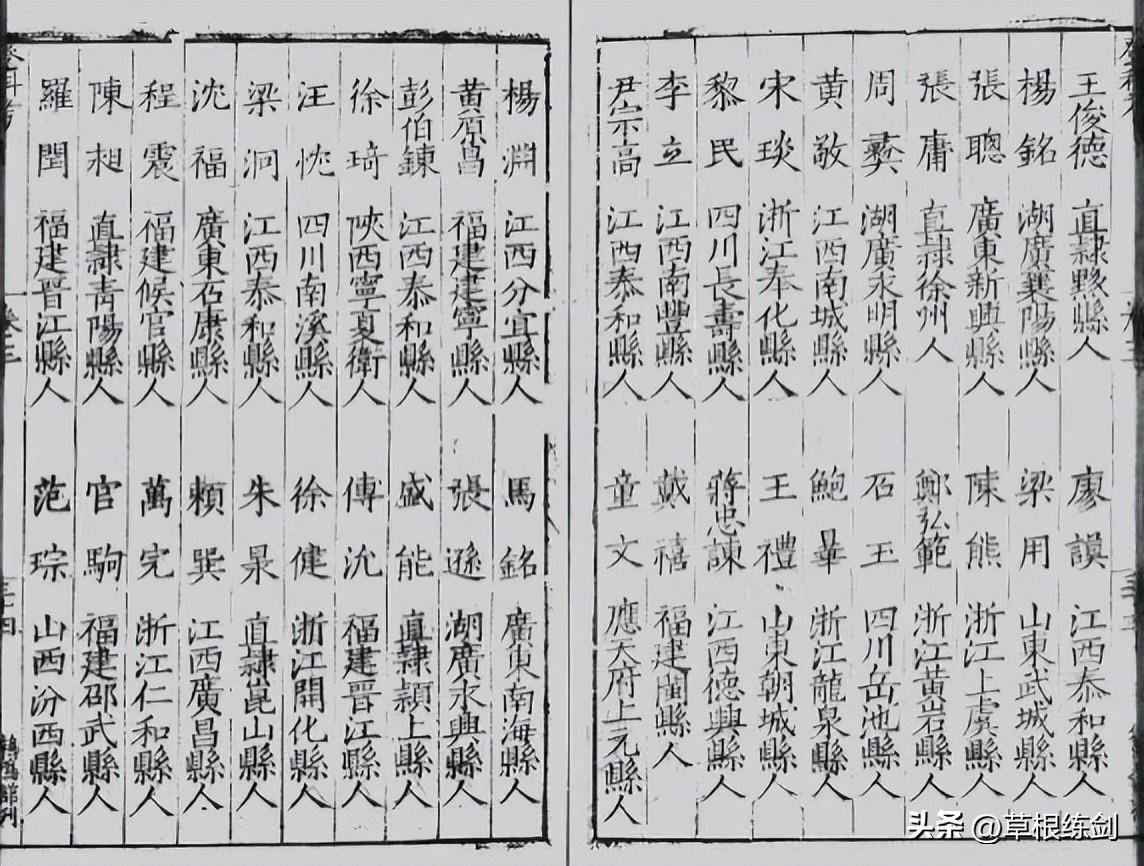 王俊德 直隷黟縣人 廖謨 江西泰和縣人
楊銘 湖廣襄陽縣人 梁用 山東武城縣人
張聰 廣東新興縣人 陳熊 浙江上虞縣人
張庸 直隷徐州人 鄭弘範 浙江黃岩縣人
周彝 湖廣永明縣人 石王 四川岳池縣人
黄敬 江西南城縣人 鮑畢 浙江龍泉縣人
宋琰 浙江奉化縣人 王禮 山東朝城縣人
黎民 四川長壽縣人 蔣忠諫 江西德興縣人
李立 江西南豐縣人 戴禧 福建閩縣人
尹宗高 江西泰和縣人 童文 應天府上元縣人
楊淵 江西分宜縣人 馬銘 廣東南海縣人
黄原昌 福建建寧縣人 張遜 湖廣永興縣人
彭伯鍊 江西泰和縣人 盛能 直隷潁上縣人
徐琦 陜西寧夏衛人 傅沇 福建晋江縣人
汪忱 四川南溪縣人 徐健 浙江開化縣人
梁洞 江西泰和縣人 朱杲 直隷崑山縣人
沈福 廣東石康縣人 賴巽 江西廣昌縣人
程震 福建候官縣人 萬完 浙江仁和縣人
陳昶 直隷青陽縣人 官駒 福建邵武縣人
羅閏 福建晋江縣人 范琮 山西汾西縣人
卷三
頭条 @草根练剑